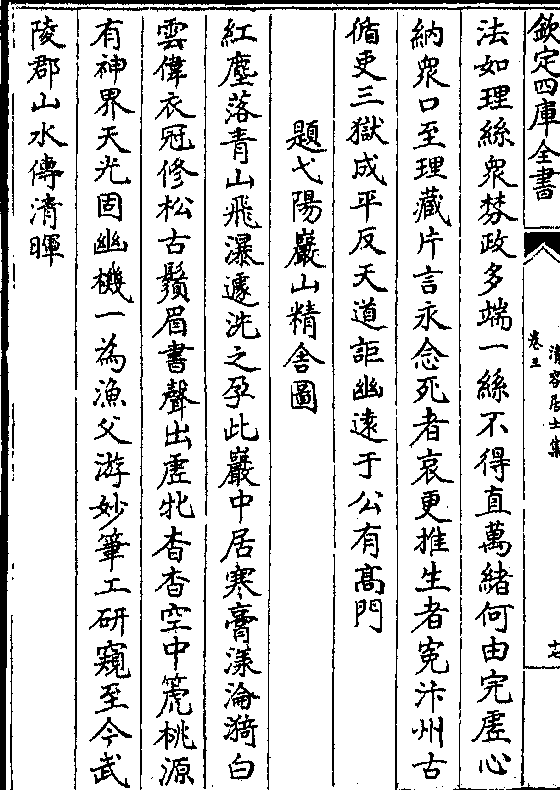 欽定四庫全書
清容居士集
卷三
法如理絲衆棼政多端一絲不得直萬緒何由完虚心
納衆口至理藏片言永念死者哀更推生者寃汴州古
循吏三獄成平反天道詎幽遠于公有髙門
題弋陽巖山精舍圖
紅塵落青山飛瀑遽洗之孕此巖中居寒膏漾淪漪白
雲偉衣冠修松古鬚眉書聲出虚牝杳杳空中箎桃源
有神界天光固幽機一為漁父游妙筆工研窺至今武
陵郡山水傳清暉